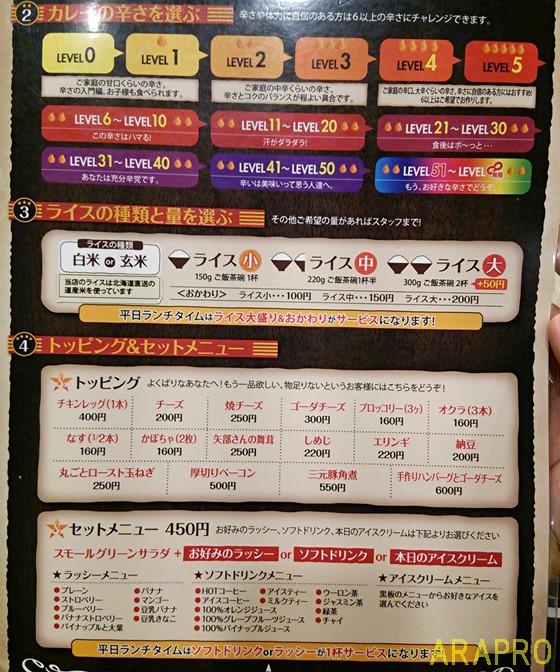 2 カレーの辛さを選ぶ 辛さや体力に自信のある方は6以上の辛さにチャレンジできます。
LEVEL0 LEVEL1 LEVEL2 LEVEL3 LEVEL4 LEVEL5
ご家庭の甘口くらいの辛さ。 ご家庭の中辛くらいの辛さ。 ご家庭の辛口、大辛くらいの辛さ、辛さに自信のある方にはおすすめ!
辛さの入門編。お子様も食べられます。 辛さとコクのバランスが程よい具合です。 6以上はご希望でお作りします。
LEVEL6〜LEVEL10 LEVEL11〜LEVEL20 LEVEL21〜LEVEL30
この辛さはハマる! 汗がダラダラ! 食後はボ〜っと…
LEVEL31〜LEVEL40 LEVEL41〜LEVEL50 LEVEL51〜LEVEL∞
あなたは充分辛党です。 辛いは美味いって思う人達へ。 もう、お好きな辛さでどうぞ
3 ライスの種類と量を選ぶ その他ご希望の量があればスタッフまで!
ライスの種類
白米 or 玄米
当店のライスは北海道直送の
道産米を使っています
ライス小 ライス中 ライス大
150g ご飯茶碗 1杯 220g ご飯茶碗1杯半 300g ご飯茶碗 2杯 +50円
<おかわり> ライス小・・・100円 ライス中・・・150円 ライス大・・・200円
平日ランチタイムはライス大盛り&おかわりがサービスになります!
4 トッピング&セットメニュー
トッピング よくばりなあなたへ!もう一品欲しい、物足りないというお客様にはこちらをどうぞ!
チキンレッグ(1本) チーズ 焼チーズ ゴーダチーズ ブロッコリー(3ヶ) オクラ(3本)
400円 200円 250円 300円 160円 160円
なす(1/2本) かぼちゃ(2枚) 矢部さんの舞茸 しめじ エリンギ 納豆
160円 160円 250円 220円 220円 200円
丸ごとロースト玉ねぎ 厚切りベーコン 三元豚角煮 手作りハンバーグとゴーダチーズ
250円 500円 550円 600円
セットメニュー 450円 お好みのラッシー、ソフトドリンク、本日のアイスクリームは下記よりお選びください
スモールグリーンサラダ + お好みのラッシー or ソフトドリンク or 本日のアイスクリーム
★ラッシーメニュー ★ソフトドリンクメニュー ★アイスクリームメニュー
●プレーン ●バナナ ●HOTコーヒー ●アイスティー ●ウーロン茶 黒板のメニューからお好きなアイスを
●ストロベリー ●マンゴー ●アイスコーヒー ●ミルクティー ●ジャスミン茶 選んでください
●ブルーベリー ●豆乳バナナ ●100%オレンジジュース ●緑茶
●バナナストロベリー ●豆乳きなこ ●100%グレープフルーツジュース ●チャイ
●パイナップルと大葉 ●100%パイナップルジュース
平日ランチタイムはソフトドリンクorラッシーが1杯サービスになります!
ARAPRO